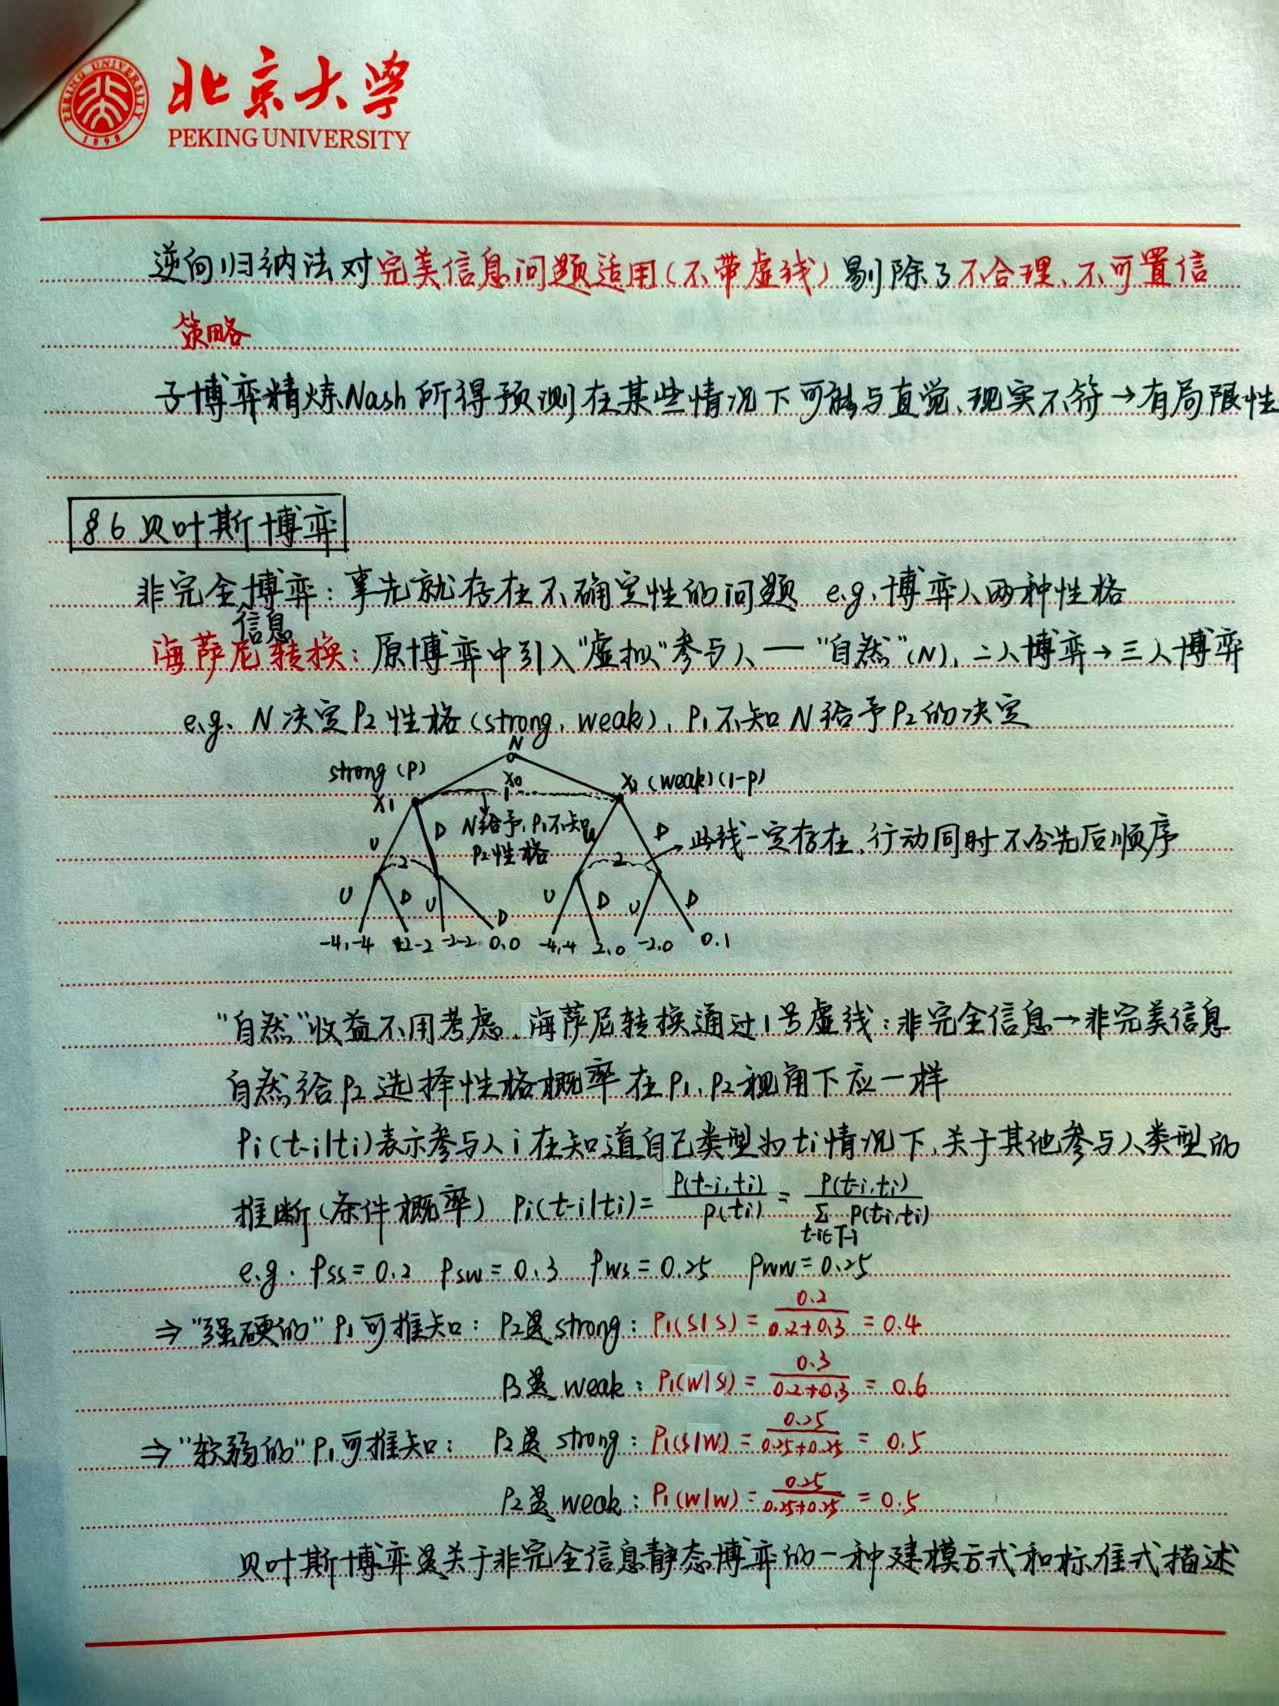 北京大学
PEKING UNIVERSITY
PEKING UNIVERSITY
1898
逆向归纳法对完美信息问题适用(不带虚线)剔除了不合理、不可置信
策略
子博弈精炼Nash所得预测在某些情况下可能与直觉、现实不符→有局限性
§6 贝叶斯博弈
非完全博弈:事先就存在不确定性的问题 e.g.博弈人两种性格
信息
海萨尼转换:原博弈中引入"虚拟"参与人—"自然"(N),二人博弈→三人博弈
e.g. N决定P2性格(strong, weak), P1不知N给予P2的决定
N
strong (P)
X0
X1
1
X2 (weak)(1-P)
U
D
N给予,P1不知
P2性格
U
D
此线一定存在,行动同时不分先后顺序
2
2
U D U D U D U D
-4,-4
2-2
-2-2
0.0
-4,-4
2,0
-2,0
0.1
"自然"收益不用考虑,海萨尼转换通过1号虚线:非完全信息→非完美信息
自然给P2选择性格概率在P1,P2视角下应一样
Pi(t-i|ti)表示参与人i在知道自己类型为ti情况下,关于其他参与人类型的
推断(条件概率) Pi(t-i|ti)= P(t-i,ti)/P(ti) = P(t-i,ti)/Σ t-i∈T-i P(t-i,ti)
e.g. Pss=0.2 Psw=0.3 Pws=0.25 Pww=0.25
⇒"强硬的"P1可推知: P2是strong: P1(S|S)= 0.2/0.2+0.3 =0.4
P2是weak: P1(W|S)= 0.3/0.2+0.3 =0.6
⇒"软弱的"P1可推知: P2是strong: P1(S|W)= 0.25/0.25+0.25 = 0.5
P2是weak: P1(W|W)= 0.25/0.25+0.25 =0.5
贝叶斯博弈是关于非完全信息静态博弈的一种建模方式和标准式描述